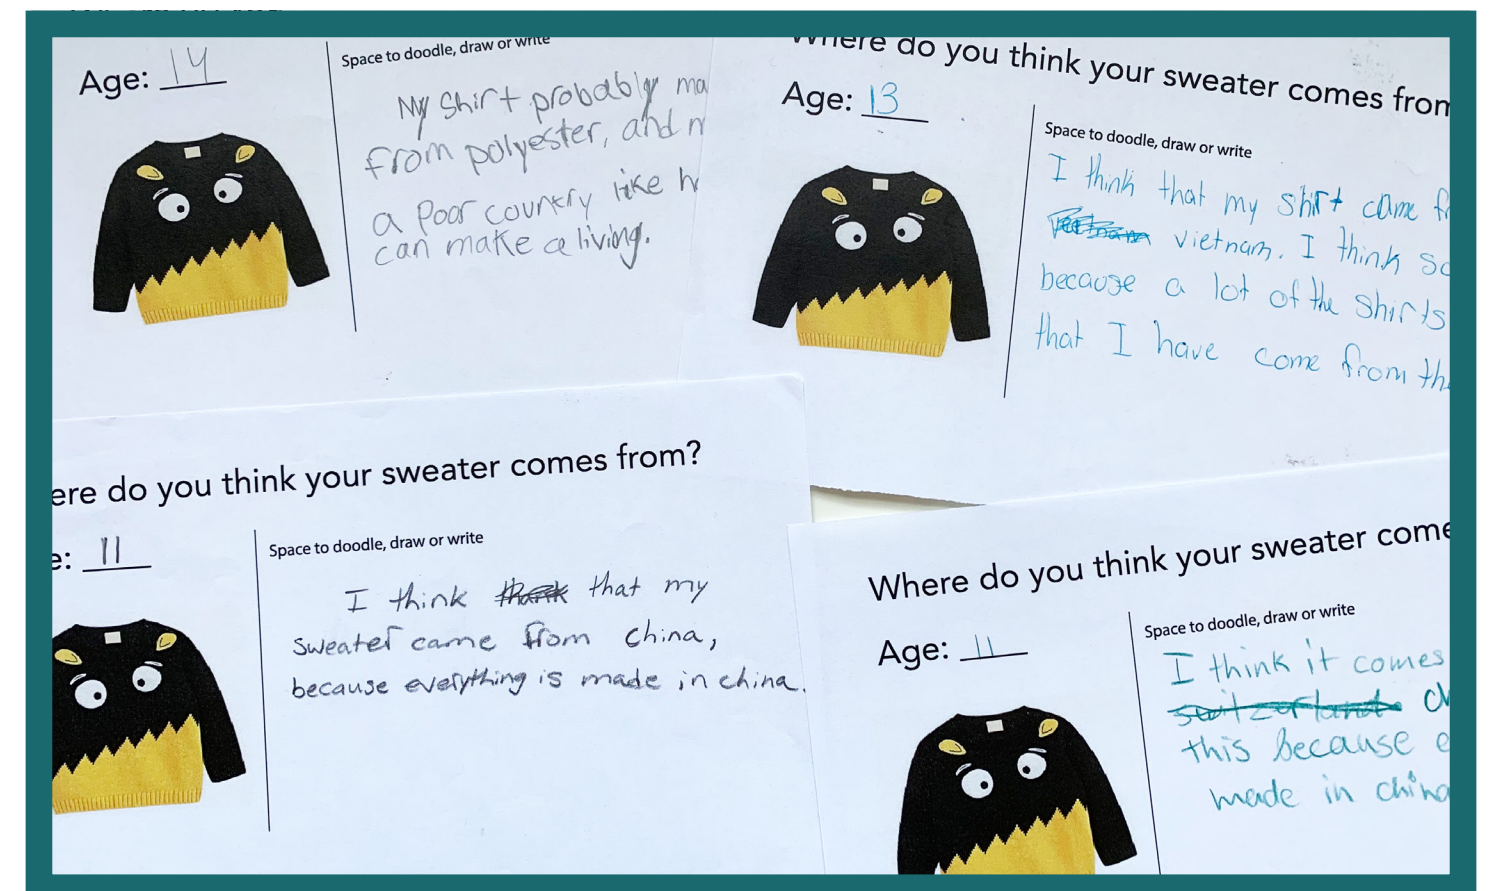 Age: 14
Space to doodle, draw or write
My shirt probably ma
from polyester, and m
a poor country like h
can make a living.
Where do you think your sweater comes from
Age: 13
Space to doodle, draw or write
I think that my shirt came f
vietnam. I think so
because a lot of the shirts
that I have come from the
ere do you think your sweater comes from?
e: 11
Space to doodle, draw or write
I think that my
sweater came from china,
because everything is made in china.
Where do you think your sweater come
Age: 11
Space to doodle, draw or write
I think it comes
switzerland ch
this because e
made in china